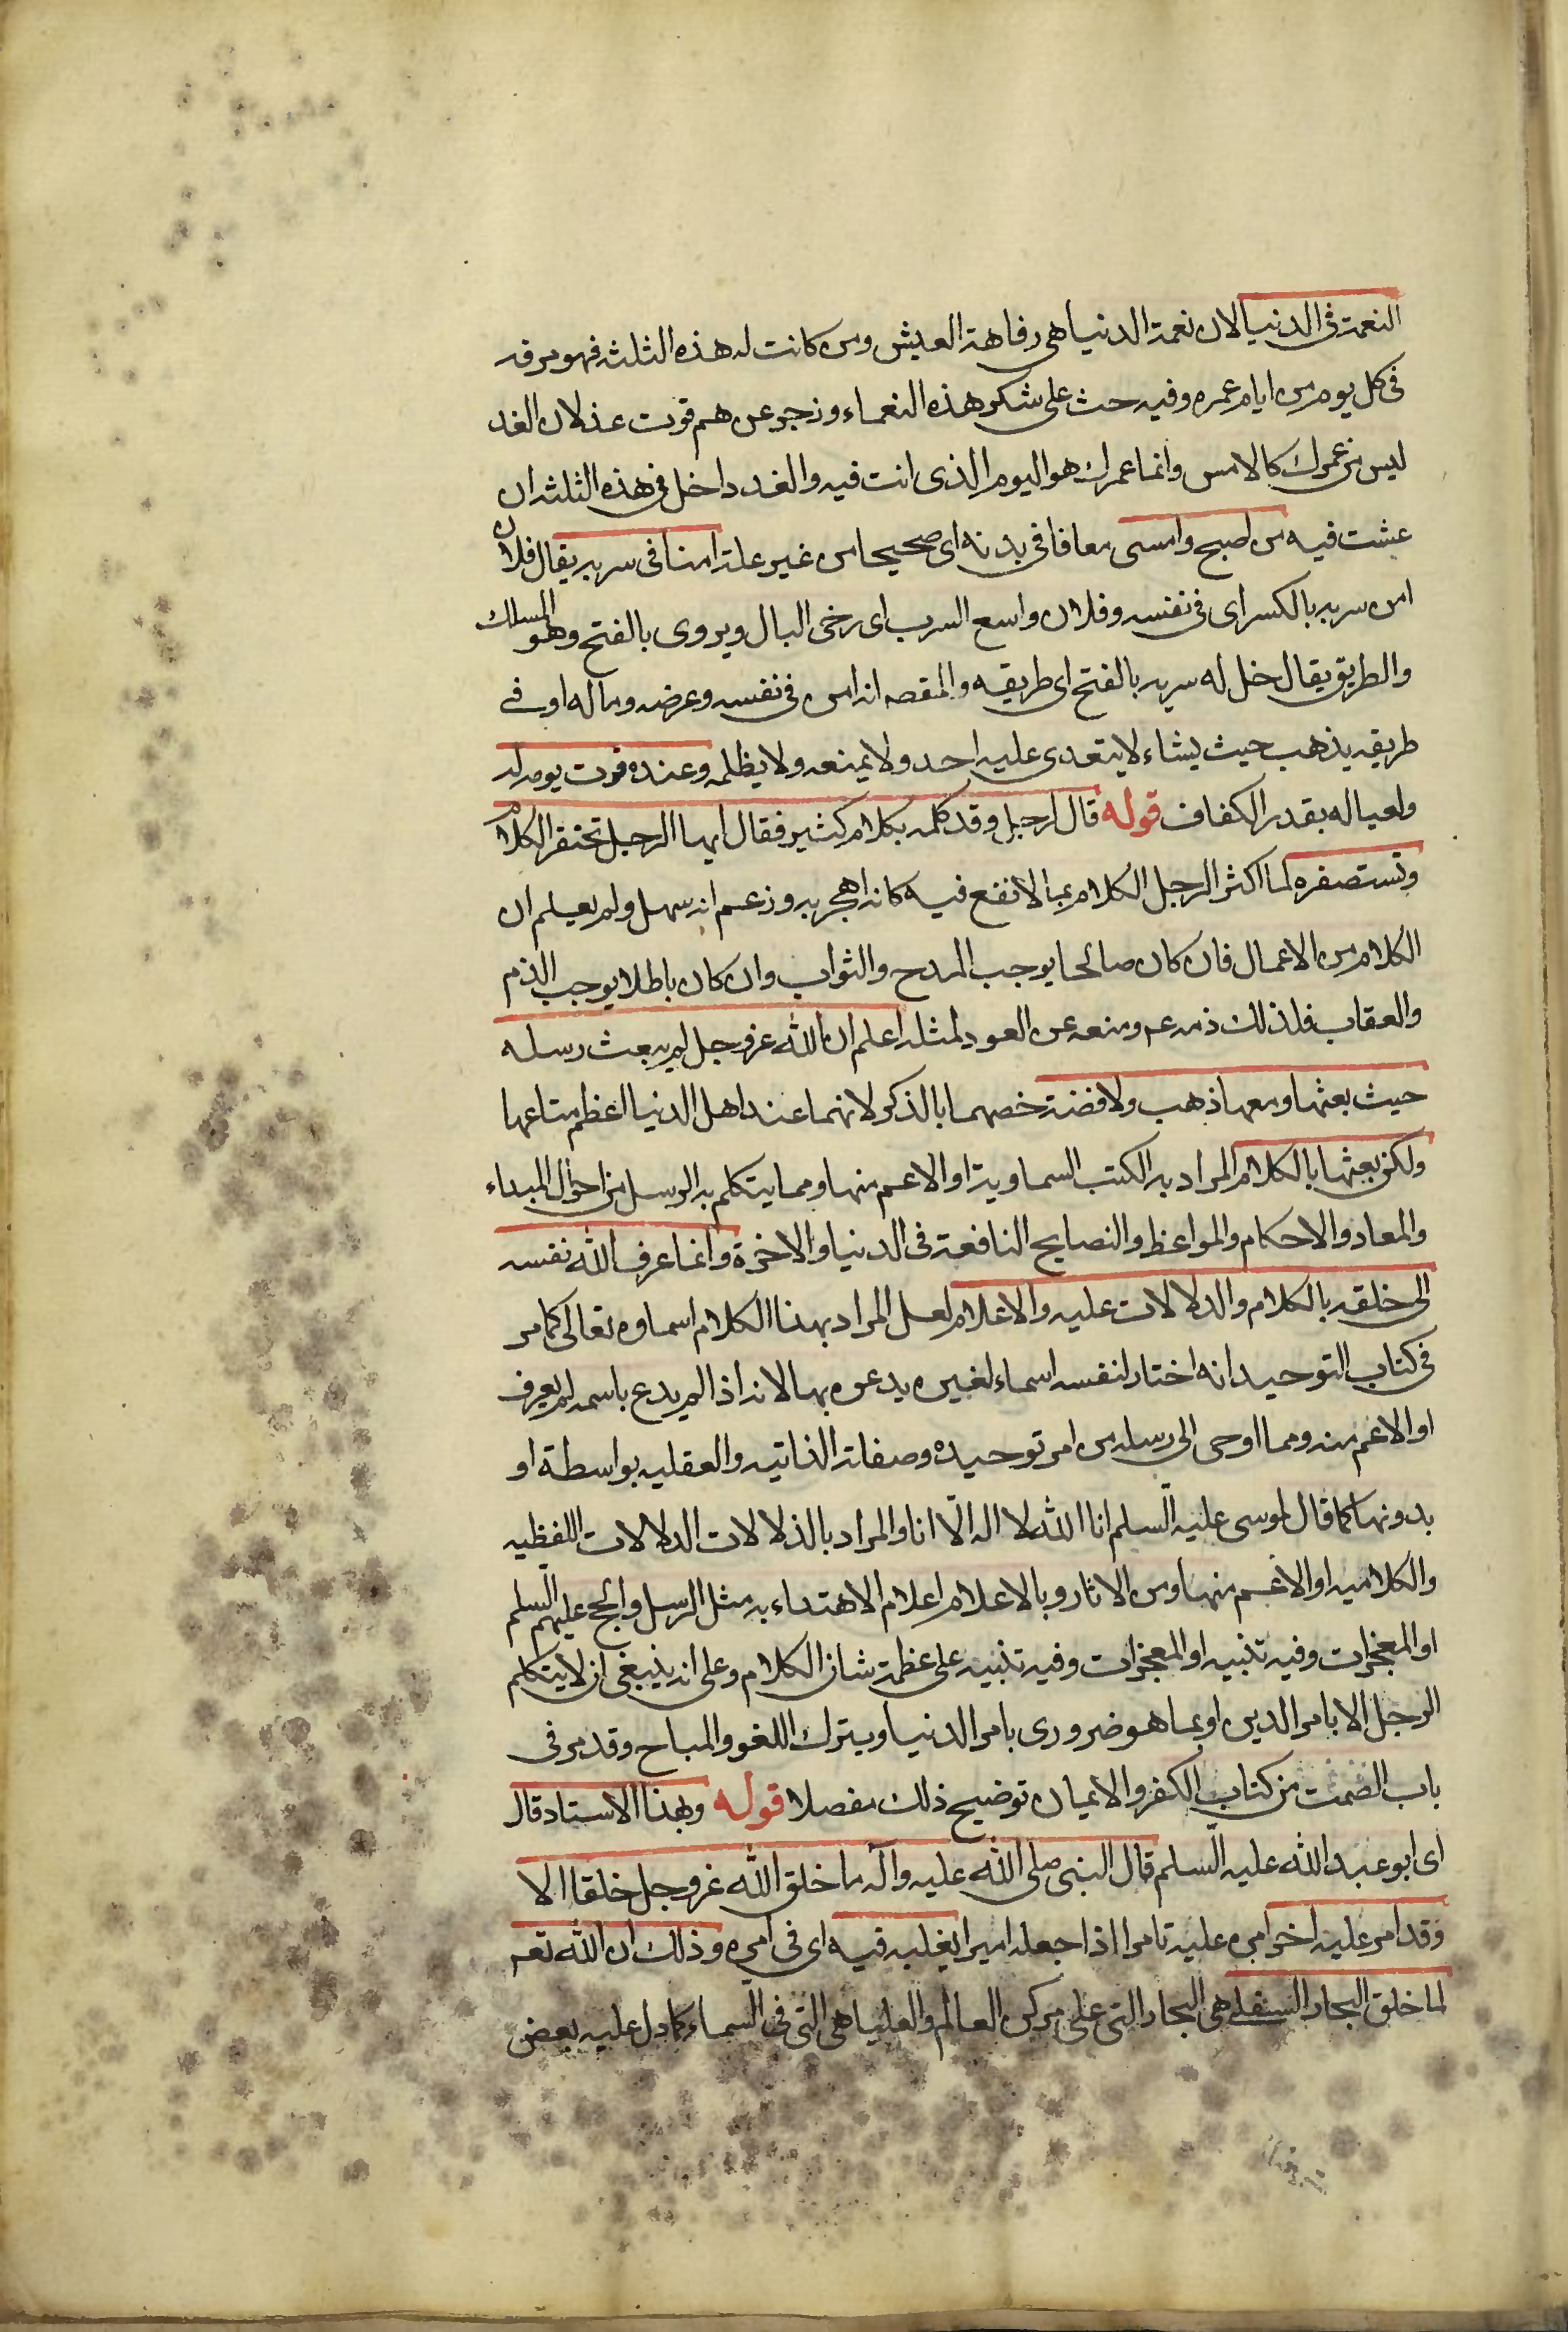 النعمة فى الدنيا لان نعمة الدنيا هى رفاهة العيش ومن كانت له هذه الثلثة فهو مرفه
فى كل يوم من ايام عمره وفيه حث على شكر هذه النعماء وزجر عن هم قوت غد لان الغد
ليس من عمرك كالامس وانما عمرك هو اليوم الذى انت فيه والغد داخل فى هذه الثلثة ان
عشت فيه من اصبح وامسى معافا فى بدنه اى صحيحا من غير علة امنا فى سربه يقال فلان
امن سربه بالكسر اى فى نفسه وفلان واسع السرب اى رخى البال ويروى بالفتح وهو المسلك
والطريق يقال خل له سربه بالفتح اى طريقه والمقصه انه امن فى نفسه وعرضه وماله او فى
طريقه يذهب حيث يشاء لا يتعدى عليه احد ولا يمنعه ولا يظلمه وعنده قوت يومه له
ولعياله بقدر الكفاف قوله قال لرجل وقد كلمه بكلام كثير فقال ايها الرجل تحتقر الكلام
وتستصغره لما اكثر الرجل الكلام بما لا نفع فيه كانه اهجر به وزعم انه سهل ولم يعلم ان
الكلام من الاعمال فان كان صالحا يوجب المدح والثواب وان كان باطلا يوجب الذم
والعقاب فلذلك ذمه عم ومنعه عن العود لمثله اعلم ان الله عز وجل لم يبعث رسله
حيث بعثها ومعها ذهب ولا فضة خصهما بالذكر لانهما عند اهل الدنيا اعظم متاعها
ولكن بعثها بالكلام المراد به الكتب السماوية او الاعم منها ومما يتكلم به الرسل من احوال المبداء
والمعاد والاحكام والمواعظ والنصايح النافعة فى الدنيا والاخرة وانما عرف الله نفسه
الى خلقه بالكلام والدلالات عليه والاعلام لعل المراد بهذا الكلام اسماوه تعالى كما مر
فى كتاب التوحيد انه اختار لنفسه اسماء لغيره يدعوه بها لانه اذا لم يدع باسمه لم يعرف
او الاعم منه ومما اوحى الى رسله من امر توحيده وصفاته الذاتيه والعقليه بواسطة او
بدونها كما قال لموسى عليه السلم انا الله لا اله الا انا والمراد بالدلالات الدلالات اللفظيه
والكلاميه او الاعم منها ومن الاثار وبالاعلام اعلام الاهتداء به مثل الرسل والحج عليهم السلم
او المعجزات وفيه تنبيه او المعجزات وفيه تنبيه على عظمة شان الكلام وعلى انه ينبغى ان لا يتكلم
الرجل الا بامر الدين او بما هو ضرورى بامر الدنيا ويترك اللغو والمباح وقد مر فى
باب الصمت من كتاب الكفر والايمان توضيح ذلك مفصلا قوله وبهذا الاسناد قال
اى ابو عبد الله عليه السلم قال النبى صلى الله عليه وآله ما خلق الله عز وجل خلقا الا
وقد امر عليه اخر امره عليه تامرا اذا جعله اميرا يغلبه فيه اى فى امره وذلك ان الله تعم
لما خلق البحار السفلى هى البحار التى على مركز العالم والعليا هى التى فى السماء كما دل عليه بعض